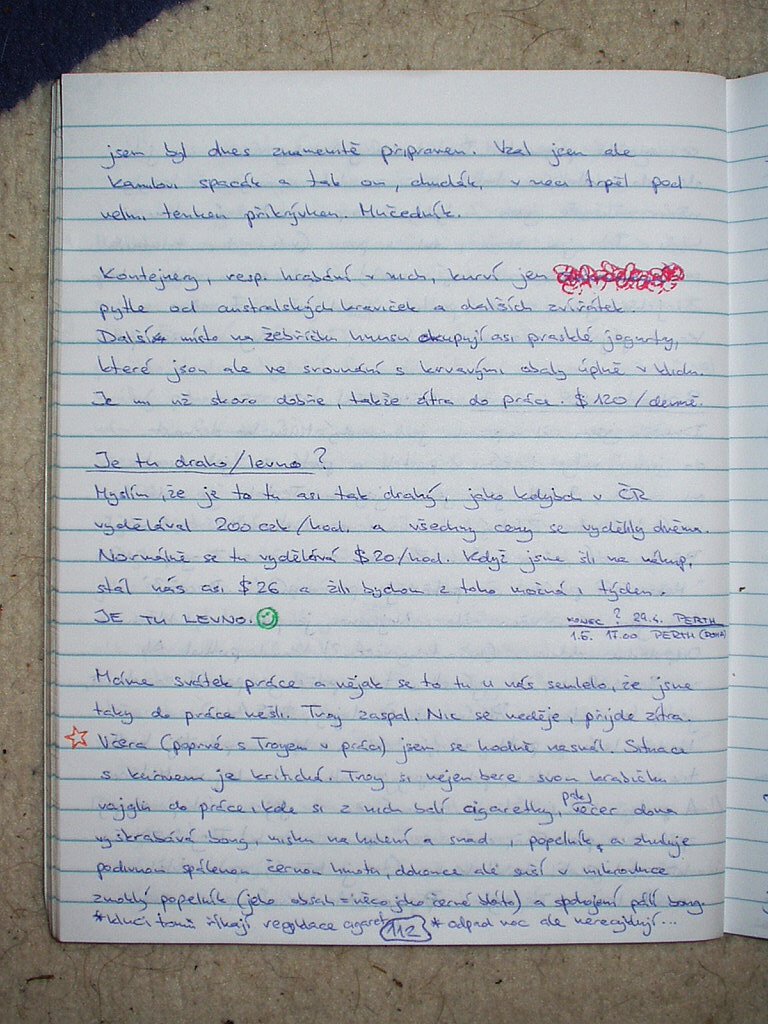 jsem byl dnes znamenitě připraven. Vzal jsem ale
Kamilovi spacák a tak on, chudák, v noci trpěl pod
velmi tenkou přikrývkou. Mučedník.
Kontejnery, resp. hrabání v nich, kurví jen
pytle od australských kraviček a dalších zvířátek.
Další místo na žebříčku hnusu okupují asi prasklé jogurty,
které jsou ale ve srovnání s krvavými obaly úplně v klidu.
Je mi už skoro dobře, takže zítra do práce. $120/denně.
Je tu draho/levno?
Myslím, že je to tu asi tak drahý, jako kdybch v ČR
vydělával 200 czk/hod. a všechny ceny se vydělily dvěma.
Normálně se tu vydělává $20/hod. Když jsme šli na nákup,
stál nás asi $26 a žili bychom z toho možná i týden.
JE TU LEVNO.
KONEC ? 29.4. PERTH
1.5. 17.00 PERTH (DOMA)
Máme svátek práce a nějak se to tu u nás semlelo, že jsme
taky do práce nešli. Troy zaspal. Nic se neděje, přijde zítra.
Včera (poprvé s Troyem v práci) jsem se hodně nasmál. Situace
s kuřivem je kritická. Troy si nejen bere svou krabičku
vajglů do práce, kde si z nich balí cigaretky, pak večer doma
vyškrabává bong, misku na hulení a snad i popelník* a zhuluje
podivnou spálenou černou hmotu, dokonce ale suší v mikrovlnce
zmoklý popelník (jeho obsah = něco jako černé bláto) a spokojeně pálí bong.
*kluci tomu říkají recyklace cigaret *odpad moc ale nerecyklují...
112